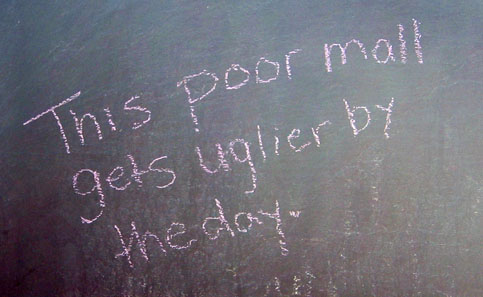 This poor mall
gets uglier by
the day